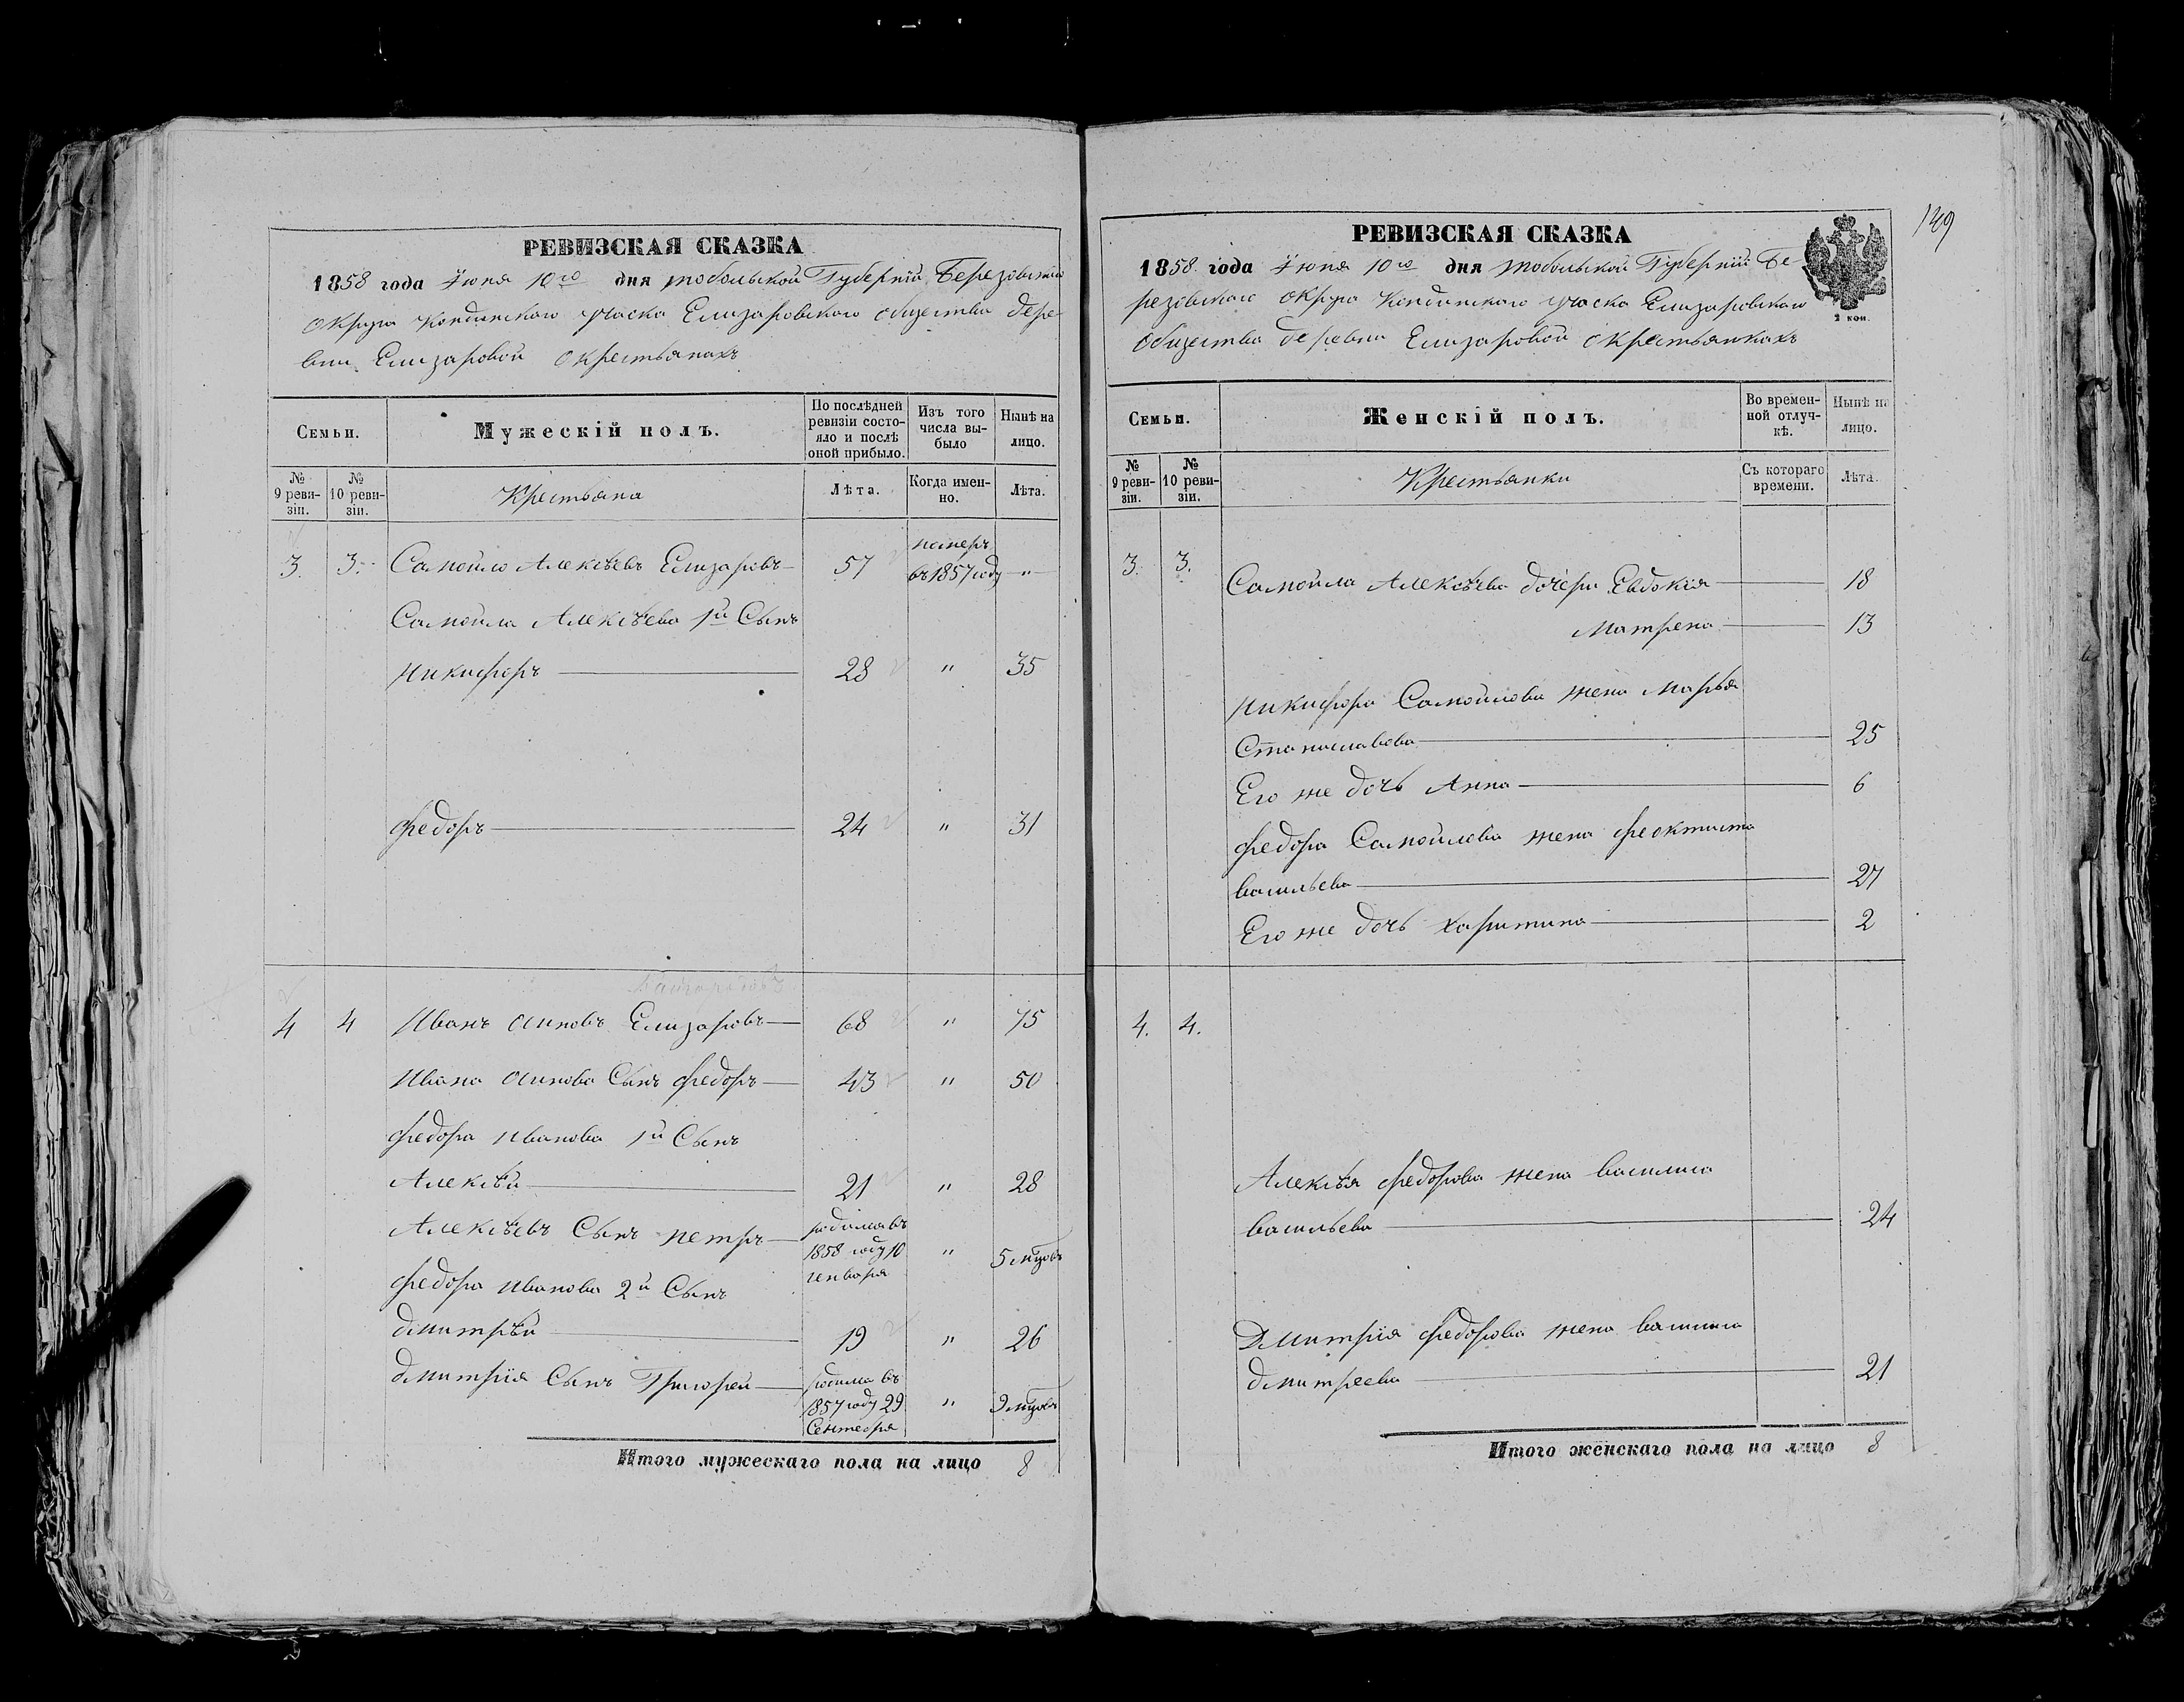 РЕВИЗСКАЯ СКАЗКА
1858 года Іюня 10го дня Тобольской Губерніи Березовскаго
округа Кондинскаго участка Елизаровскаго общества дере-
вни Елизаровой о крестьянахъ
Семьи.
Мужескій полъ.
По послѣдней ревизіи состо-
яло и послѣ
оной прибыло.
Изъ того
числа вы-
было
Нынѣ на
лицо.
№
9 реви-
зіи.
№
10 реви-
зіи.
Крестьяна
Лѣта.
Когда имен-
но.
Лѣта.
померъ
3. 3. Самойло Алексѣевъ Елизаровъ 57 въ 1857 году "
Самойла Алексѣева 1й Сынъ
Никифоръ 28 " 35
Федоръ 24 " 31
4 4 Иванъ Осиповъ Елизаровъ 68 " 75
Ивана Осипова Сынъ Федоръ 43 " 50
Федора Иванова 1й Сынъ
Алексѣй 21 " 28
Алексѣевъ Сынъ Петръ родился въ
1858 году 10 " 5 мцовъ
генваря
Федора Иванова 2й Сынъ
Дмитрѣй 19 " 26
Дмитрія Сынъ Григорей родился въ
1857 году 29 " 9 мцовъ
Сентебря
Итого мужескаго пола на лицо 8
149
РЕВИЗСКАЯ СКАЗКА
1858 года Іюня 10го дня Тобольской Губерніи Бе-
резовскаго округа Кондинскаго участка Елизаровскаго
общества деревни Елизаровой о крестьянкахъ
2 коп.
Семьи.
Женскій полъ.
Во времен-
ной отлуч-
кѣ.
Нынѣ на
лицо.
№
9 реви-
зіи.
№
10 реви-
зіи.
Крестьянки
Съ котораго
времени.
Лѣта.
3. 3. Самойла Алексѣева дочери Евдокія 18
Матрена 13
Никифора Самойлова жена Марья
Станиславова 25
Его же дочь Анна 6
Федора Самойлова жена Феоктиста
Васильева 27
Его же дочь Харитина 2
4. 4.
Алексѣя Федорова жена Василиса
Васильева 24
Дмитрія Федорова жена Василиса
Дмитреева 21
Итого женскаго пола на лицо 8